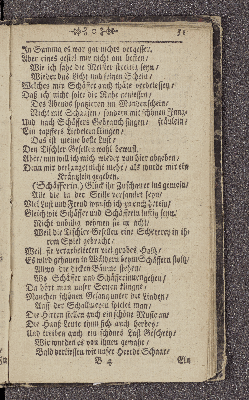 ( o )
In Summa es war gar nichts vergessen.
Aber eines gefiel mir nicht am besten/
Wie ich sahe die Meister stellen
Wieder das Licht und seinen Schein/
Welches mein Schäffer auch thäte verdriessen/
Daß ich nicht solte die Ruhe geniessen/
Des Abends spaziren im Mondenschein/
Nicht mit Schaafen/ sondern mit schönen Jung-
Und nach Schäffers Gebrauch singen/ fräulein/
Ein tapffers Liedelein klingen/
Das ist meine beste Lust/
Den Tischler Gesellen wohl bewust.
Aber/ nun will ich mich wieder von hier abgeben/
Denn mir verlanget nicht mehr/ als würde mir ein
Kräntzlein gegeben.
(Schäfferin.) Glück ihr Zuschauer ins gemein/
Alle die in der Stille versamlet seyn/
Viel Lust und Freud wünsch ich euch
Gleich wie Schäffer und Schäfferin lustig seyn/
Nicht unbillig nennen sie es recht/
Weil die Tischler Gesellen eine Schäfferey in ih-
rem Spiel gebracht/
Weil sie verarbeiteten viel grobes Holtz/
Es wird gehauen in Wäldern beym Schäffern stoltz/
Allwo die dicken Bäume stehen/
Wo Schäffer und Schäfferinnen gehen/
Da hört man unser Seyten klingen/
Manchen schönen Gesang unter der Linden/
Auff der Schallmeyen spielet man/
Die Hirten stellen auch ein schöne Music an/
Die Hauß Leute thun sich auch herbey/
Und treiben auch ein schönes Lust Geschrey/
Wir wurden es von ihnen gewahr/
Bald verliessen wir unser Heerde Schaar/
B 4
Ein